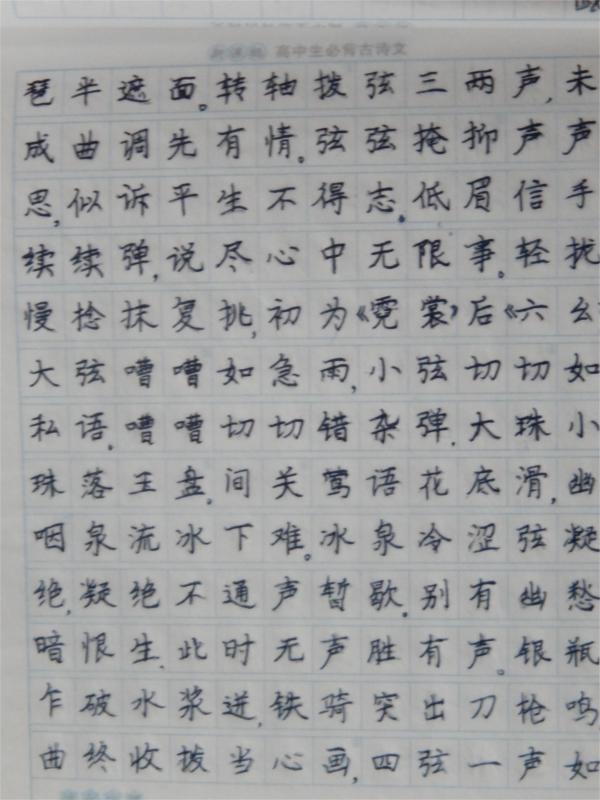 高中生必背古诗文
琶半遮面。转轴拨弦三两声,未
成曲调先有情。弦弦掩抑声声
思,似诉平生不得志。低眉信手
续续弹,说尽心中无限事。轻扰
慢捻抹复挑,初为《霓裳》后《六幺
大弦嘈嘈如急雨,小弦切切如
私语。嘈嘈切切错杂弹.大珠小
珠落王盘,间关莺语花底滑,幽
咽泉流冰下难。冰泉冷涩弦凝
绝,凝绝不通声暂歇.别有幽愁
暗恨生.此时无声胜有声。银瓶
乍破水浆迸,铁骑突出刀枪鸣
曲终收拨当心画,四弦一声如